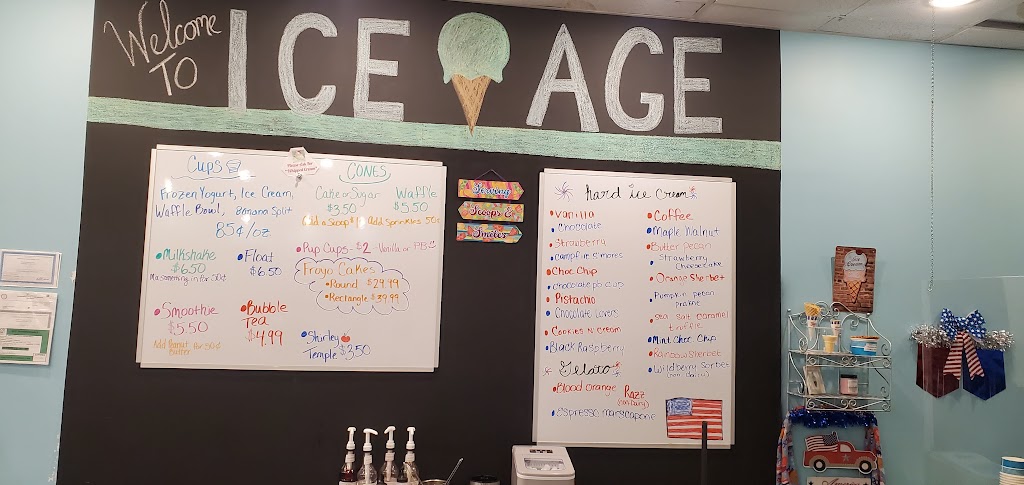 Welcome
TO
ICE AGE
Cups
Frozen Yogurt, Ice Cream,
Waffle Bowl, Banana Split
85¢/oz
CONES
Cake or Sugar
$3.50
Waffle
$5.50
Add a Scoop $1
Add Sprinkles 50¢
• Milkshake
$6.50
• Float
$6.50
• Pup Cups - $2 - Vanilla or PB
Froyo Cakes
• Round $29.99
• Rectangle $39.99
• Smoothie
$5.50
Add Peanut
Butter for 50¢
• Bubble
Tea
$4.99
• Shirley
Temple $3.50
Serving
Scoops &
Smiles
Hard ice cream
• Vanilla
• Chocolate
• Strawberry
• Campfire S'mores
• Choc Chip
• chocolate pb cup
• Pistachio
• Chocolate Lovers
• Cookies N Cream
• Black Raspberry
• Coffee
• Maple Walnut
• Butter pecan
• Strawberry
Cheesecake
• Orange Sherbet
• Pumpkin pecan
praline
• Sea Salt caramel
truffle
• Mint Choc Chip
• Rainbow Sherbet
• Wildberry Sorbet
(non dairy)
Gelato
• Blood orange Razz
(non Dairy)
• espresso marscapone
America